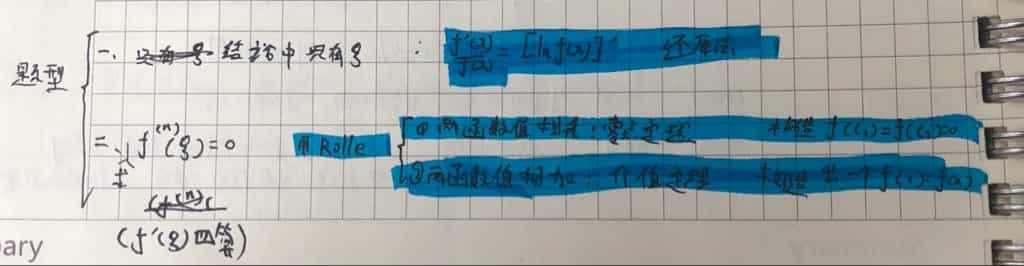 题型
一、只有ξ 结论中只有ξ : f'(x)/f(x) = [ln f(x)]' 还原法
二、f⁽ⁿ⁾(ξ)=0 用 Rolle
①两函数值相乘:零点定理 f(c₁)=f(c₂)=0
②两函数值相加:介值定理 一个f(c)=f(a)
(f⁽ⁿ⁾(
(f'(ξ)四
ary